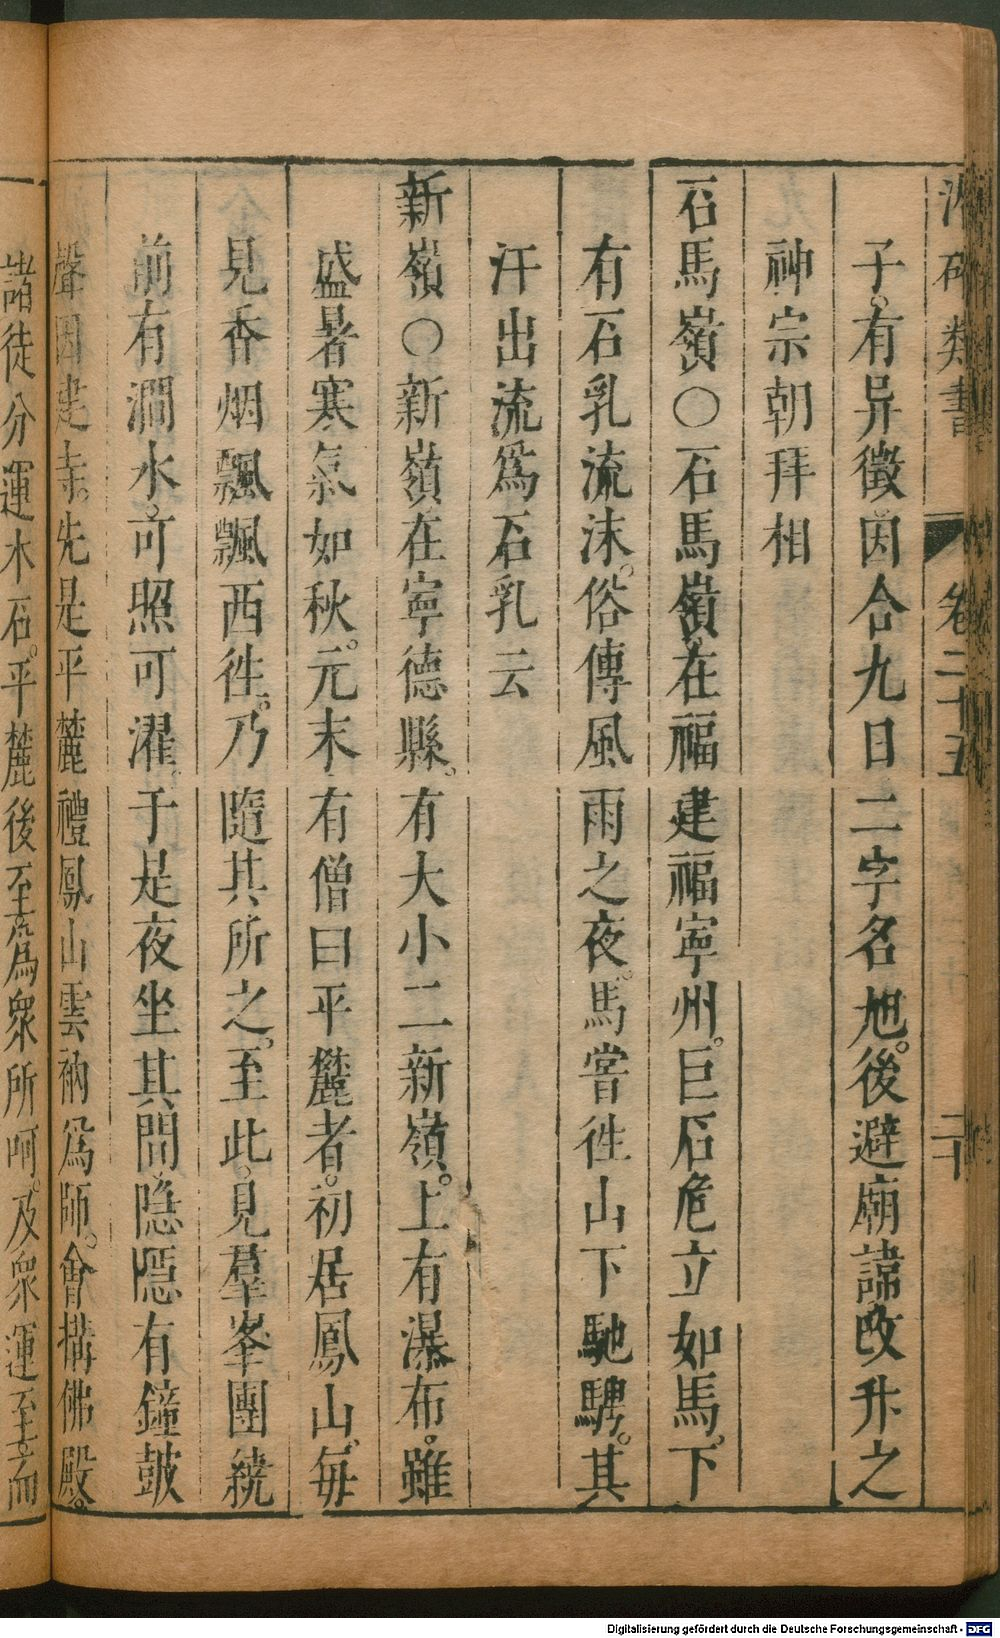 類書 卷二十五 二十
子。有异徵因合九日二字名旭。後避廟諱改升之
神宗朝拜相
石馬嶺○石馬嶺在福建福寧州。巨石危立如馬。下
有石乳流沫。俗傳風雨之夜。馬嘗徃山下馳騁。其
汗出流爲石乳云
新嶺○新嶺在寧德縣。有大小二新嶺。上有瀑布。雖
盛暑寒氣如秋。元末有僧曰平麓者。初居鳳山。每
見香烟飄飄西徃。乃隨其所之。至此。見羣峯團繞
前有澗水。可照可濯。于是夜坐其間隐隱有鐘鼓
聲因建寺。先是平麓禮鳳山雲衲爲師。會搆佛殿。
諸徒分運木石。平麓後至爲衆所呵。及衆運至而
Digitalisierung gefördert durch die Deutsche Forschungsgemeinschaft - DFG